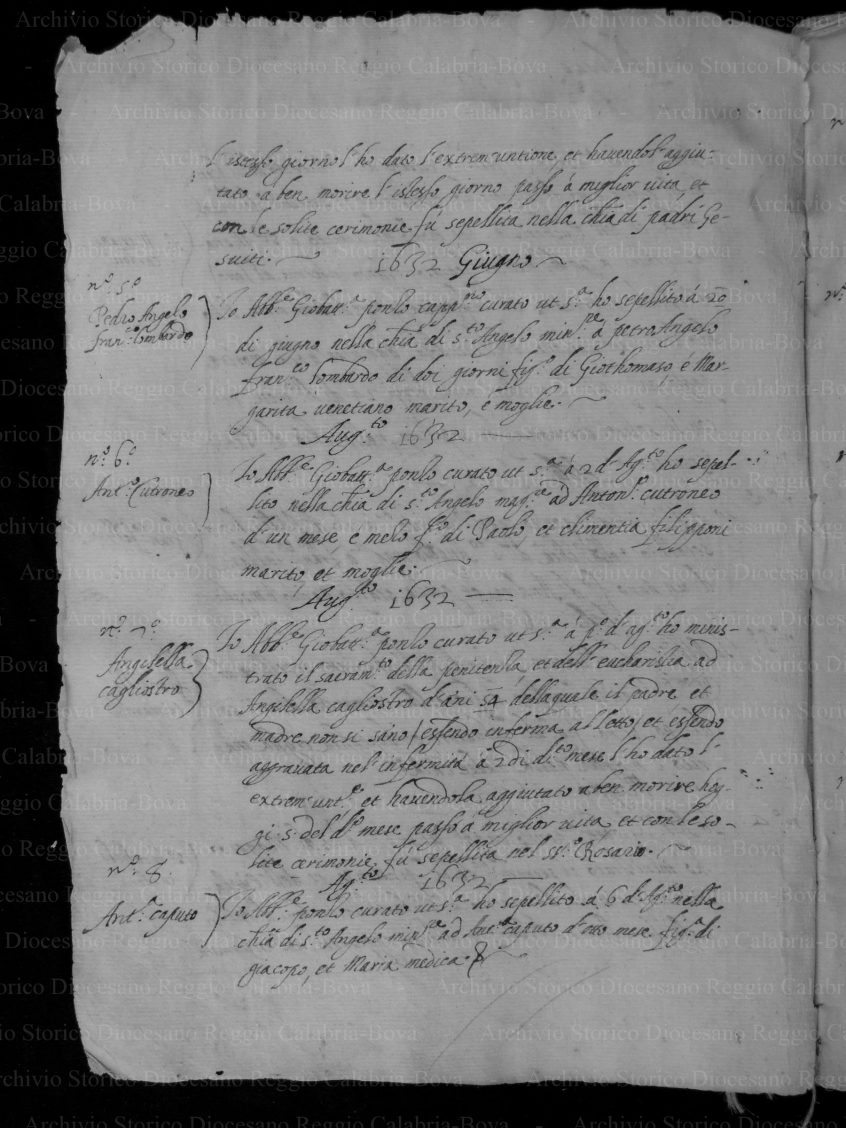 l'istesso giorno l'ho dato l'extrem'untione, et havendol' aggiu-
tato à ben morire l'istesso giorno passò à miglior vita, et
con le solite cerimonie fù sepellita nella chia di padri Ge-
suiti.
1632 Giugno
nº. 5º
Pedro Angelo
franco lombardo
Io Abbe Giobatta ponlo cappno curato ut sa ho sepellito à 20
di giugno nella chia di sto Angelo minre à petro Angelo
franco lombardo di doi giorni figo di Giothomaso, è Mar-
garita venetiano marito, è moglie.
Augto 1632
nº. 6º
Anto Cutroneo
Io Abbe Giobatta ponlo curato ut sa à 2 d' Agto ho sepel-
lito nella chia di sto Angelo magre ad Antono cutroneo
d'un mese è melo fo di Paolo, et climentia filipponi
marito, et moglie.
Augto 1632
nº. 7º
Angilella
cagliostro
Io Abbe Giobatta ponlo curato ut sa à po d' agto ho minis-
trato il sacramto della penitentia, et dell' eucharistia ad
Angilella cagliostro d'ani 54 della quale il padre et
madre non si sano / essendo inferma al letto / et essendo
aggravata nel' infermità à 2 di dito mese l'ho dato l'
extrem'unte et havendola aggiutato a ben morire hog-
gi 5 del do mese passò à miglior vita et con le so-
lite cerimonie fù sepellita nel sso Rosario.
nº. 8.
Agto 1632
Anta caputo
Io Abbe ponlo curato ut sa ho sepellito à 6 d' Agto nella
chia di sto Angelo minre ad Anta caputo d'otto mese figa di
giacopo, et Maria medica.